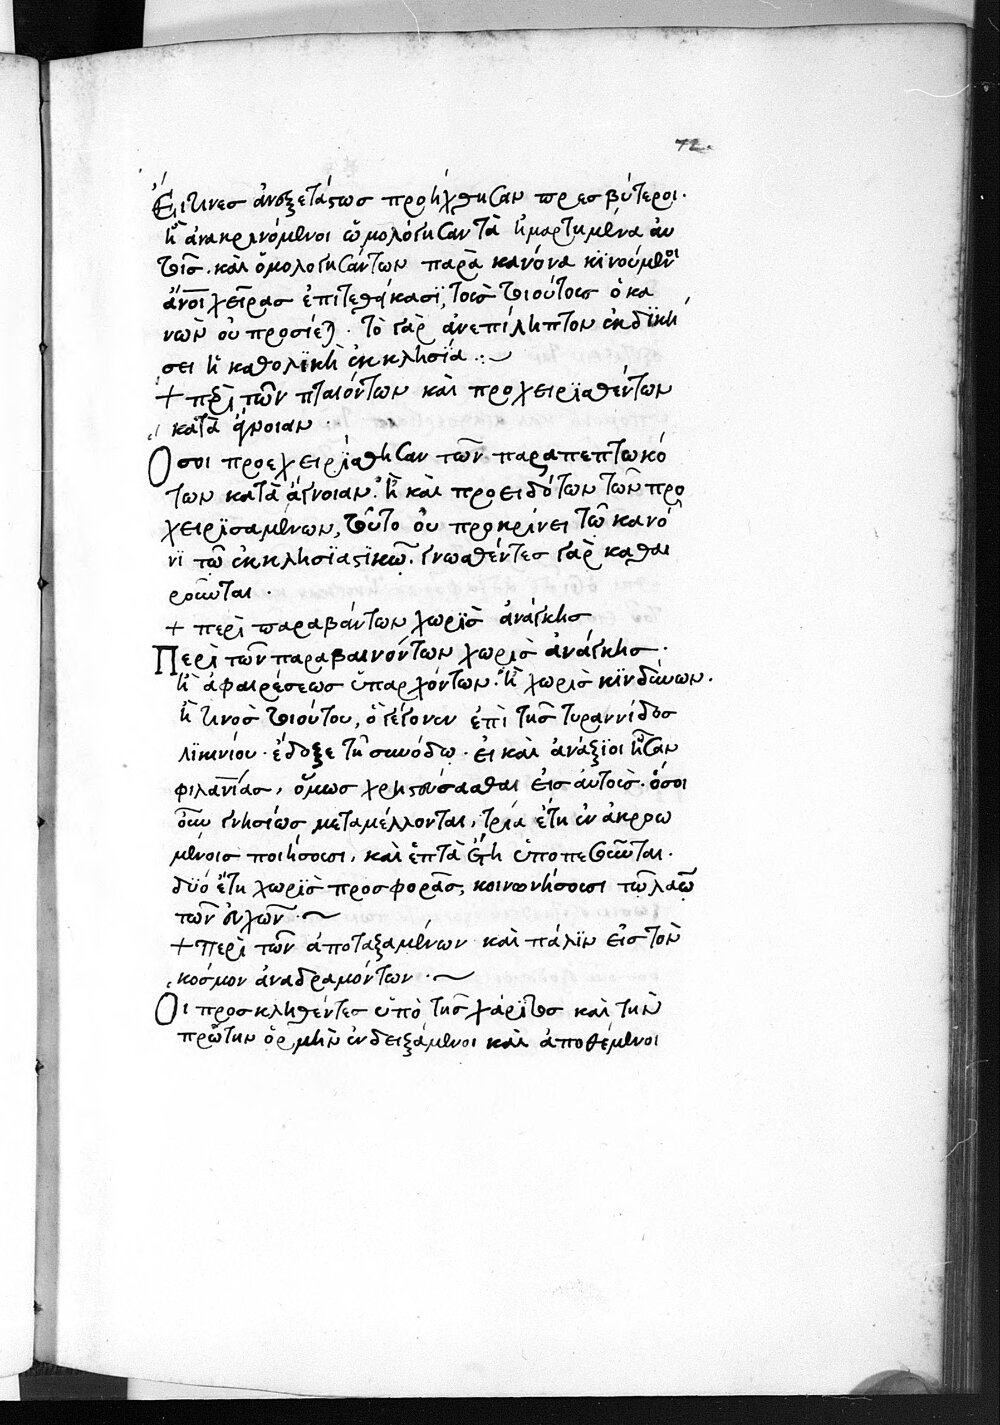 72
Εἴ τινες ἀνεξετάστως προήχθησαν πρεσβύτεροι.
ἢ ἀνακρινόμενοι ὡμολόγησαν τὰ ἡμαρτημένα αὐ
τοῖς. καὶ ὁμολογησάντων παρὰ κανόνα κϊνούμενοι
ἄνοι χεῖρας ἐπιτεθήκασϊ, τοὺς τοιούτους ὁ κα
νὼν οὐ προσίεται. τὸ γὰρ ἀνεπίληπτον ἐκδϊκή
σει ἡ καθολϊκὴ ἐκκλησία.
+ περὶ τῶν πταιόντων καὶ προχειρϊσθέντων
κατὰ ἄγνοιαν.
Ὅσοι προεχειρίσθησαν τῶν παραπεπτωκό
των κατὰ ἄγνοιαν. ἢ καὶ προειδότων τῶν προ
χειρϊσαμένων, τοῦτο οὐ προκρίνει τῶ κανό
νϊ τῶ ἐκκλησϊαστϊκῶ. γνωσθέντες γὰρ καθαι
ροῦνται.
+ περὶ παραβάντων χωρὶς ἀνάγκης
Περὶ τῶν παραβαινόντων χωρὶς ἀνάγκης.
ἢ ἀφαιρέσεως ὑπαρχόντων. ἢ χωρὶς κϊνδύνων.
ἤ τινος τοιούτου, ὃ γέγονεν ἐπὶ τῆς τυραννίδος
λϊκινίου. ἔδοξε τῆ συνόδω. εἰ καὶ ἀνάξϊοι ἦσαν
φιλανίας, ὅμως χρηστεύσασθαι εἰς αὐτούς. ὅσοι
οὖν γνησίως μεταμέλλονται, τρία ἔτη ἐν ἀκροω
μένοις ποιήσουσι, καὶ ἑπτὰ ἔτη ὑποπεσοῦνται.
δύο ἔτη χωρὶς προσφορᾶς, κοινωνήσουσι τῶ λαῶ
τῶν εὐχῶν.
+ Περὶ τῶν ἀποταξαμένων καὶ πάλϊν εἰς τὸν
κόσμον ἀναδραμόντων.
Οἱ προσκληθέντες ὑπὸ τῆς χάρϊτος καὶ τὴν
πρώτην ὁρμὴν ἐνδειξάμενοι καὶ ἀποθέμενοι